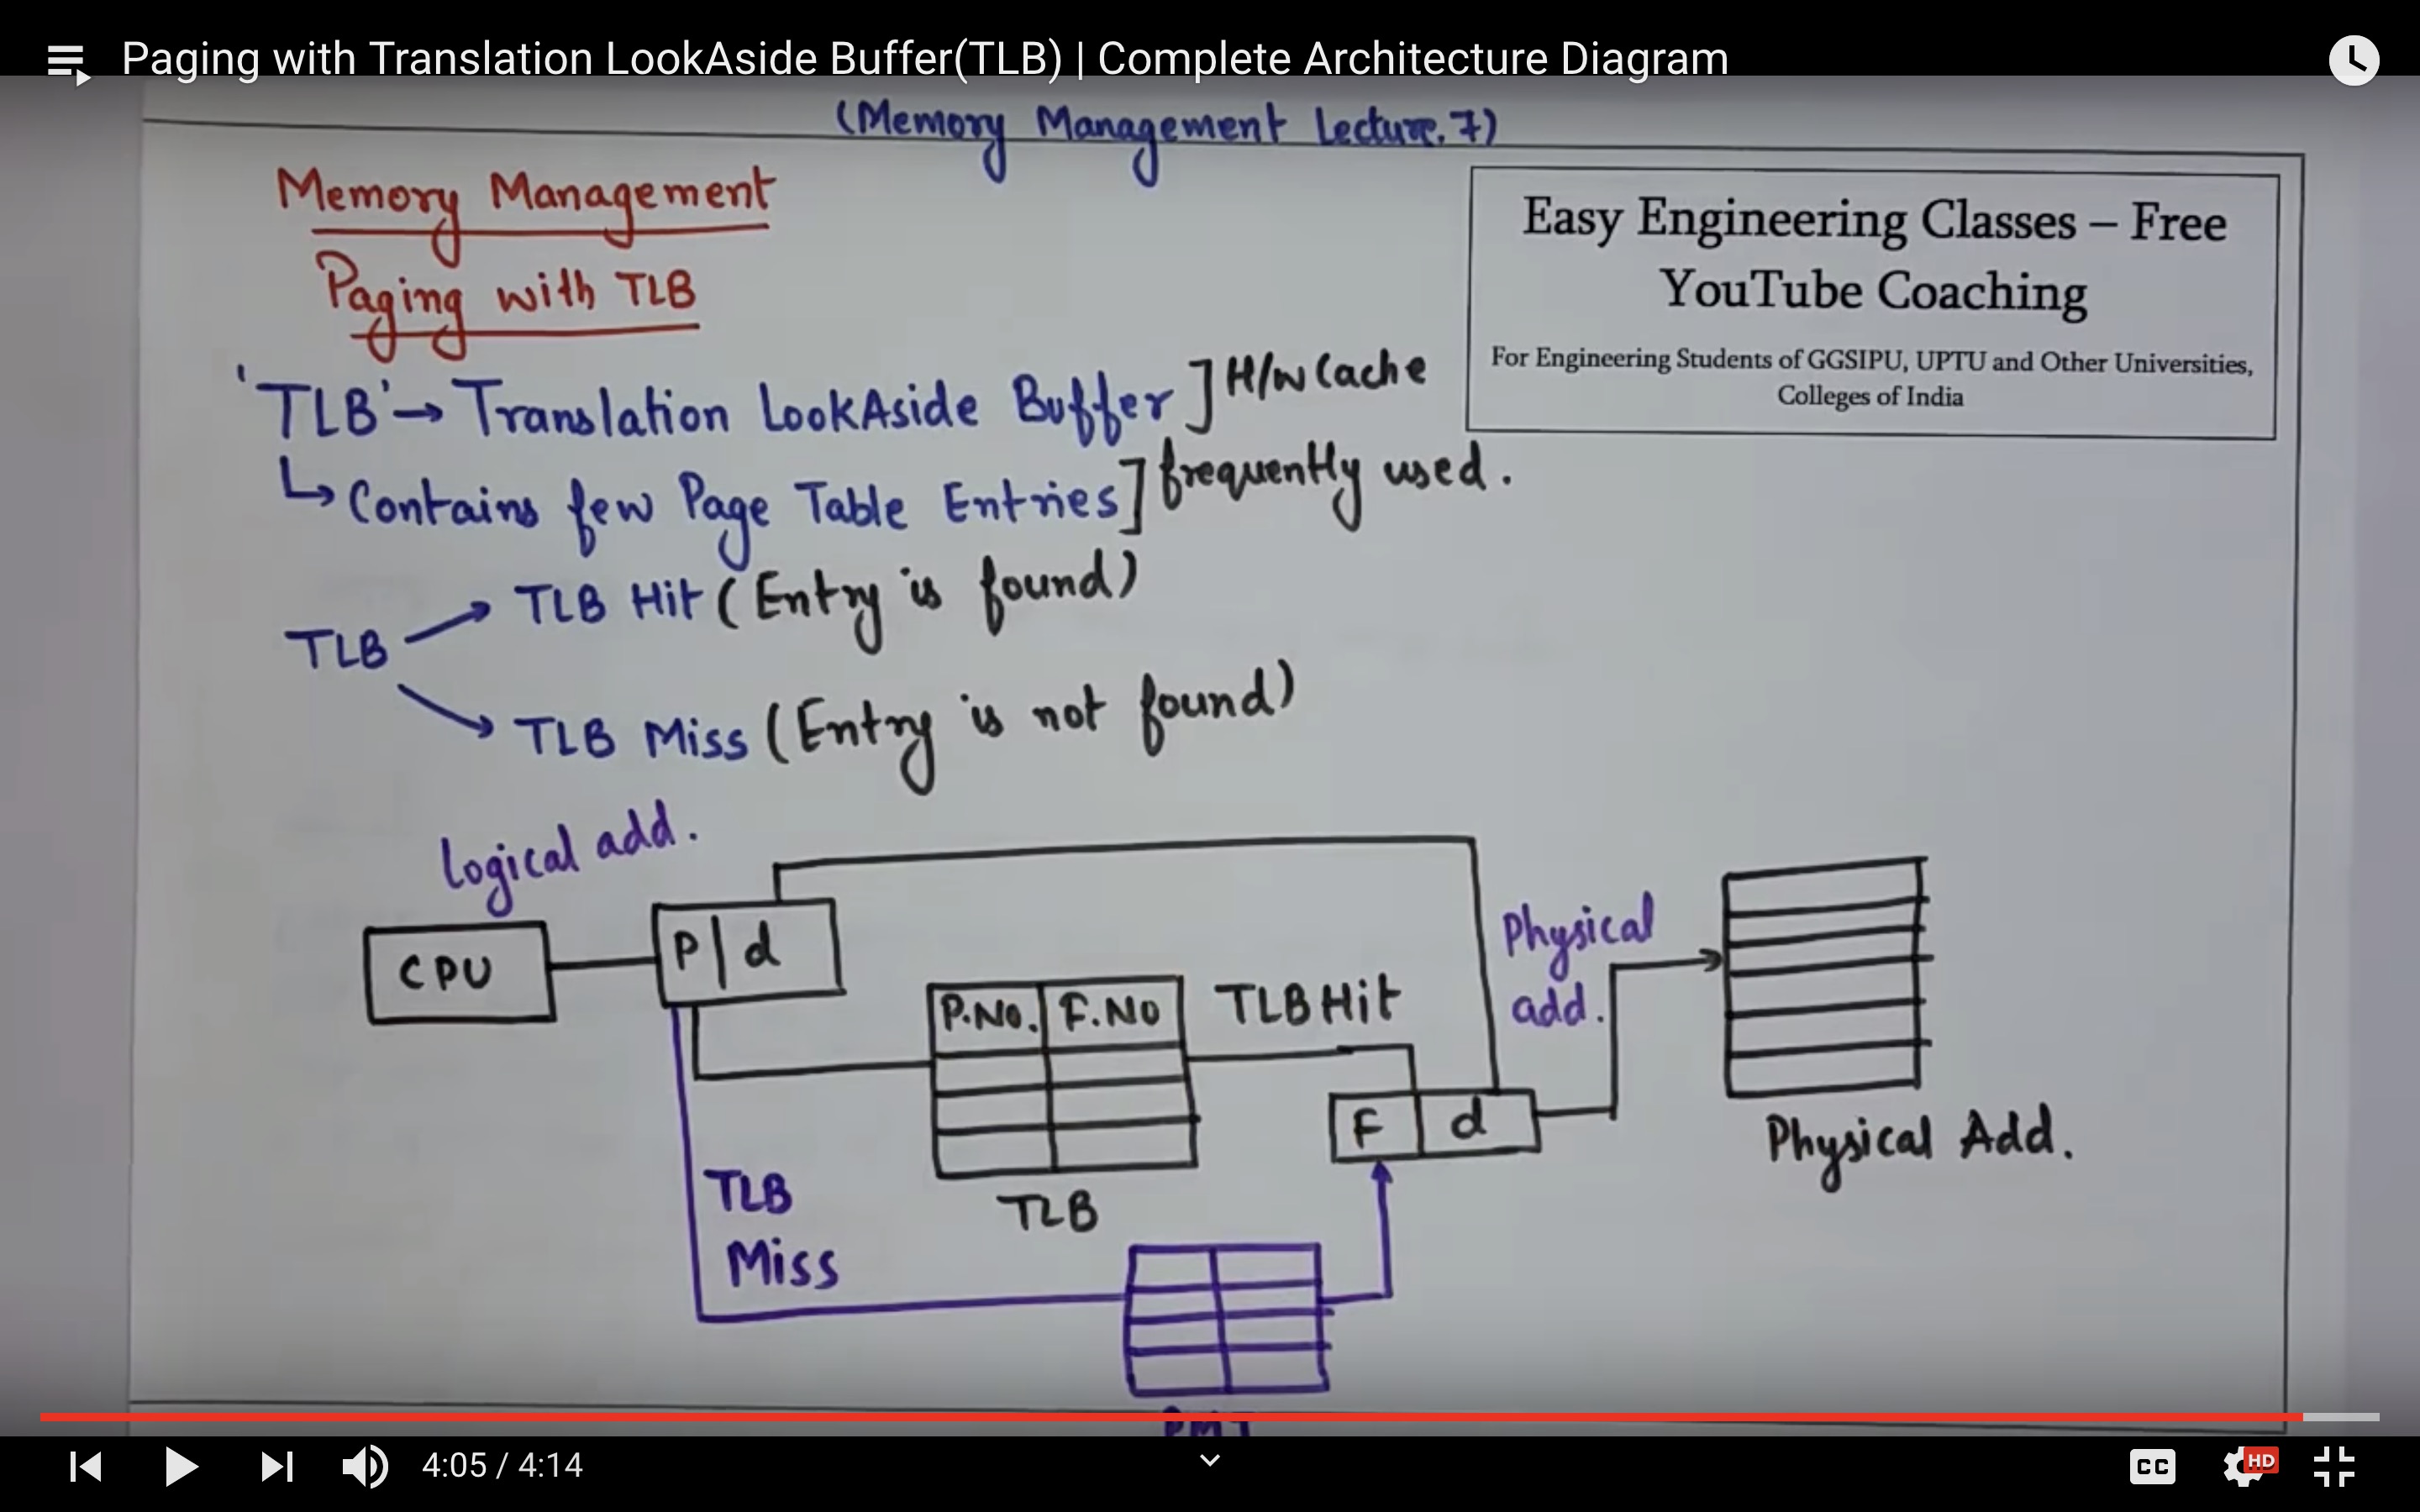 Paging with Translation LookAside Buffer(TLB) | Complete Architecture Diagram
(Memory Management Lecture.7)
Memory Management
Paging with TLB
Easy Engineering Classes – Free
YouTube Coaching
For Engineering Students of GGSIPU, UPTU and Other Universities,
Colleges of India
'TLB' → Translation LookAside Buffer] H/w Cache
↳ Contains few Page Table Entries] frequently used.
TLB
TLB Hit (Entry is found)
TLB Miss (Entry is not found)
Logical add.
CPU
P | d
P.No. F.No
TLB Hit
Physical
add.
F d
Physical Add.
TLB
TLB
Miss
PMT
4:05 / 4:14
CC
HD